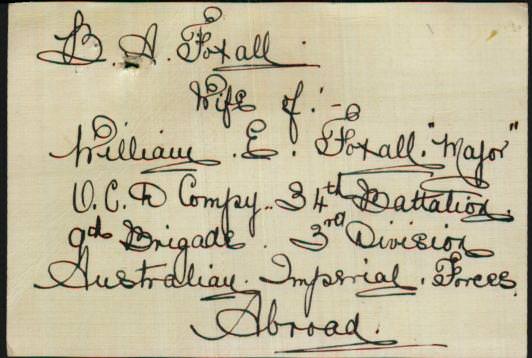 B. A. Foxall.
Wife of:-
William. E. Foxall. "Major"
O.C. D Compy.. 34th Battalion.
9th Brigade. 3rd Division
Australian. Imperial. Forces
Abroad.